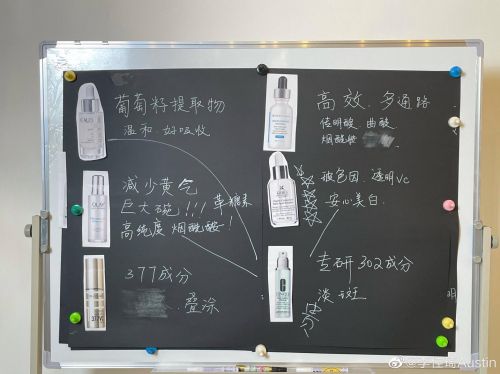 葡萄籽提取物
温和.好吸收
OLAY
减少黄气
巨大碗!!! 革糖素
高纯度 烟酰胺!
377成分
叠涂
高效.多通路
传明酸.曲酸
烟酰胺
玻色因.透明VC
安心美白.
CLINIQUE
专研302成分
淡斑
明
@李佳琦Austin